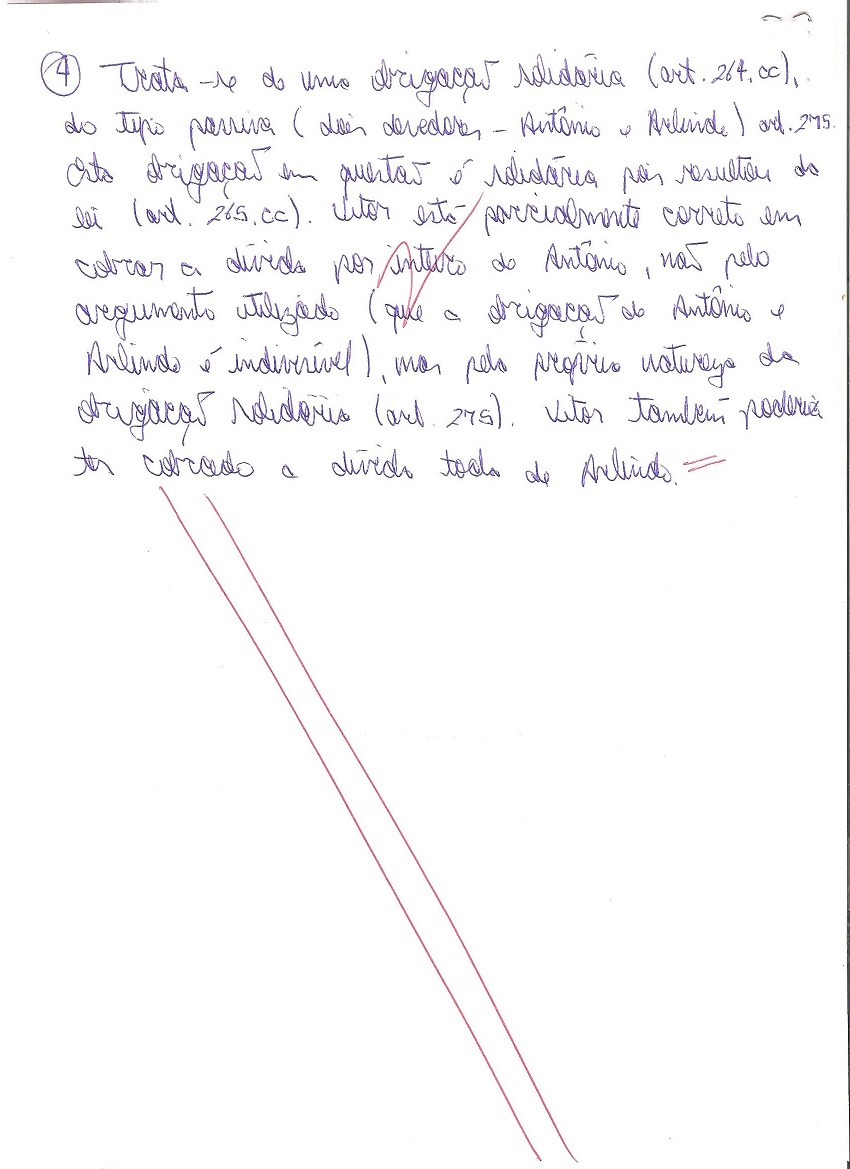 4 Trata-se de uma obrigação solidária (art. 264, CC),
do tipo passiva (dois devedores - Antônio e Arlindo) art. 275.
Esta obrigação em questão é solidária pois resultou da
lei (art. 265, CC). Vitor está parcialmente correto em
cobrar a dívida por inteiro de Antônio, não pelo
argumento utilizado (que a obrigação de Antônio e
Arlindo é indivisível), mas pela própria natureza da
obrigação solidária (art. 275). Vitor também poderia
ter cobrado a dívida toda de Arlindo.